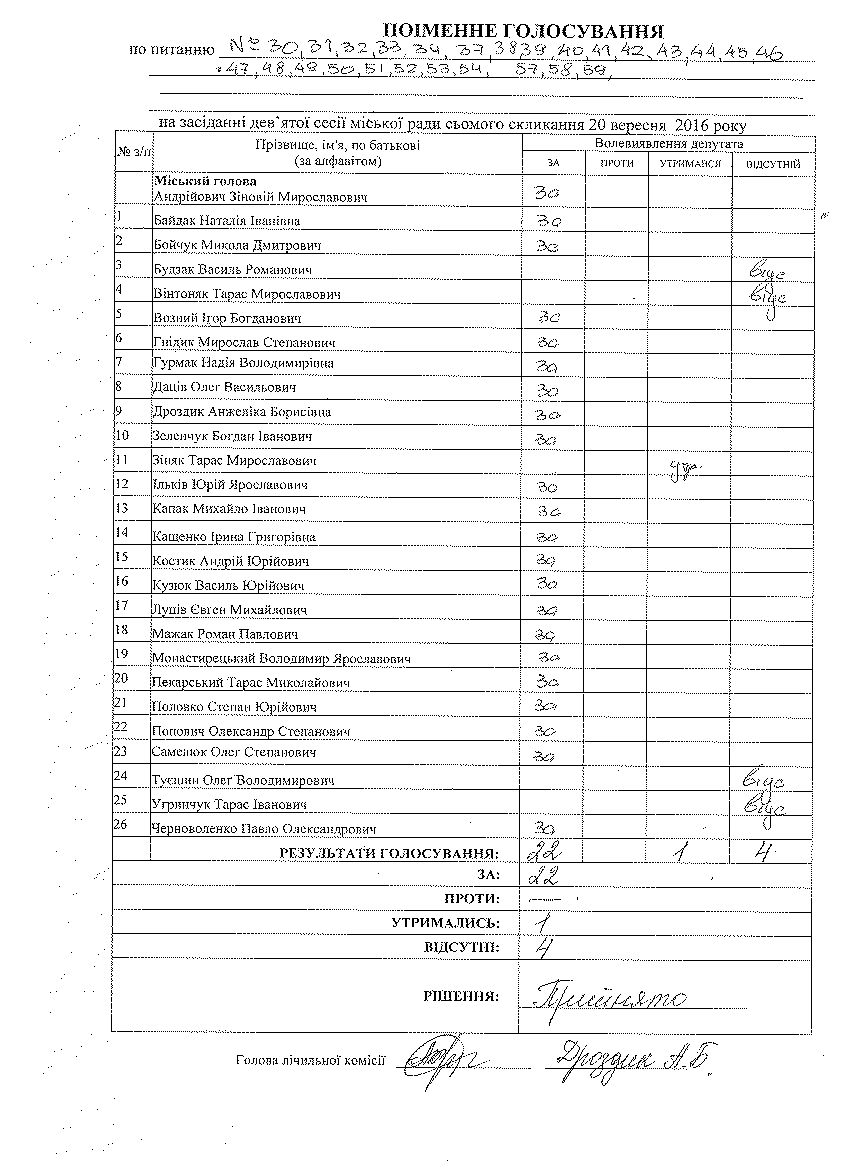 ПОІМЕННЕ ГОЛОСУВАННЯ
по питанню № 30,31,32,33,34, 37,38 39,40,41,42,43,44,45,46
47,48,49,50,51,52,53,54, 57,58,59,
на засіданні дев`ятої сесії міської ради сьомого скликання 20 вересня 2016 року
№ з/п Прізвище, ім'я, по батькові (за алфавітом) Волевиявлення депутата
ЗА ПРОТИ УТРИМАВСЯ ВІДСУТНІЙ
Міський голова
Андрійович Зіновій Мирославович за
1 Байдак Наталія Іванівна за
2 Бойчук Микола Дмитрович за
3 Будзак Василь Романович відс
4 Вінтоняк Тарас Мирославович відс
5 Возний Ігор Богданович за
6 Гнідик Мирослав Степанович за
7 Гурмак Надія Володимирівна за
8 Даців Олег Васильович за
9 Дроздик Анжеліка Борисівна за
10 Зеленчук Богдан Іванович за
11 Зіняк Тарас Мирославович утр.
12 Ільків Юрій Ярославович за
13 Капак Михайло Іванович за
14 Кащенко Ірина Григорівна за
15 Костик Андрій Юрійович за
16 Кузюк Василь Юрійович за
17 Лупів Євген Михайлович за
18 Мажак Роман Павлович за
19 Монастирецький Володимир Ярославович за
20 Пекарський Тарас Миколайович за
21 Половко Степан Юрійович за
22 Попович Олександр Степанович за
23 Саменюк Олег Степанович за
24 Олег Володимирович відс
25 Угринчук Тарас Іванович відс
26 Черноволенко Павло Олександрович за
РЕЗУЛЬТАТИ ГОЛОСУВАННЯ: 22 1 4
ЗА: 22
ПРОТИ: —
УТРИМАЛИСЬ: 1
ВІДСУТНІ: 4
РІШЕННЯ: Прийнято
Голова лічильної комісії Дроздик А.Б.